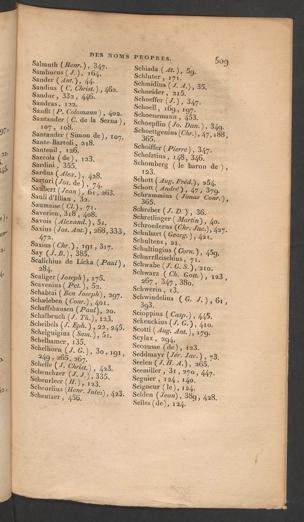 DES NOMS PROPRES. 509
Salmuth (Henr.), 347.
Sambucus (J.), 164.
Sander (Ant.), 44.
Sandius (C. Christ.), 462.
Sandur, 332, 446.
Sandras, 122.
Sanfit (P. Colomont), 402.
Santander (C. de la Serna),
107, 108.
Santander (Simon de), 107.
Sante-Bartoli, 218.
Santeuil, 126.
Sarcola (de), 123.
Sardini, 355.
Sardus (Alex.), 428.
Sartori (Jos. de), 74.
Saubert (Jean), 61, 263.
Sauli d'Illian, 32.
Saumaise (Cl.), 71.
Saverien, 318, 408.
Savois (Alexand.), 51.
Saxius (Jos. Ant.), 268, 333,
472.
Saxius (Chr.), 191, 317.
Say (J. B.), 385.
Scalichius de Licka (Paul),
284.
Scaliger (Joseph), 175.
Scavenius (Pet.), 52.
Schabtai (Ben Joseph), 297.
Schæleben (Cour.), 401.
Schaffshausen (Paul), 20.
Schalbruch (J. Th.), 123.
Scheibels (J. Eph.), 22, 245.
Schelguigius (Sam.), 51.
Schelhamer, 135.
Schelhorn (J. G.), 30, 191,
249, 265, 267.
Schelle (J. Christ.), 423.
Scheuchzer (J. J.), 335.
Scheurleer (H.), 123.
Scheurlius (Henr. Jules), 423.
Scheutzer, 456.
Schiada (At.), 59.
Schluter, 171.
Schmidius (J. A.), 35.
Schneider, 215.
Schoeffer (J.), 347.
Schoell, 169, 197.
Schoenemann, 453.
Schoepflin (Jo. Dan.), 349.
Schoettgenius (Chr.), 47, 188,
365.
Schoiffer (Pierre), 347.
Scholztius, 148, 346.
Schomberg (le baron de),
123.
Schott (Aug. Fréd.), 254.
Schott (André), 47, 379.
Schrammius (Jonas Conr.),
365.
Schreber (J. D.), 36.
Schretlinger (Martin), 40.
Schroederus (Chr. Jac.), 427.
Schubart (Georg.), 421.
Schultens, 21.
Schultingius (Corn.), 459.
Schurzfleischius, 71.
Schwabe (J. G. S.), 210.
Schwarz (Ch. Goth.), 123,
267, 347, 380.
Schwerin, 13.
Schwindelius (G. J.), 61,
393.
Scioppius (Casp.), 445.
Sckenckius (J. G.), 410.
Scotti (Aug. Ant.), 179.
Scylax, 294.
Secousse (de), 123.
Seddmayr (Jer. Jac.), 73.
Seelen (J. H. A.), 265.
Seemiller, 31, 270, 447.
Seguier, 124, 140.
Seigneur (le), 124.
Selden (Jean), 389, 428.
Selles (de), 124.